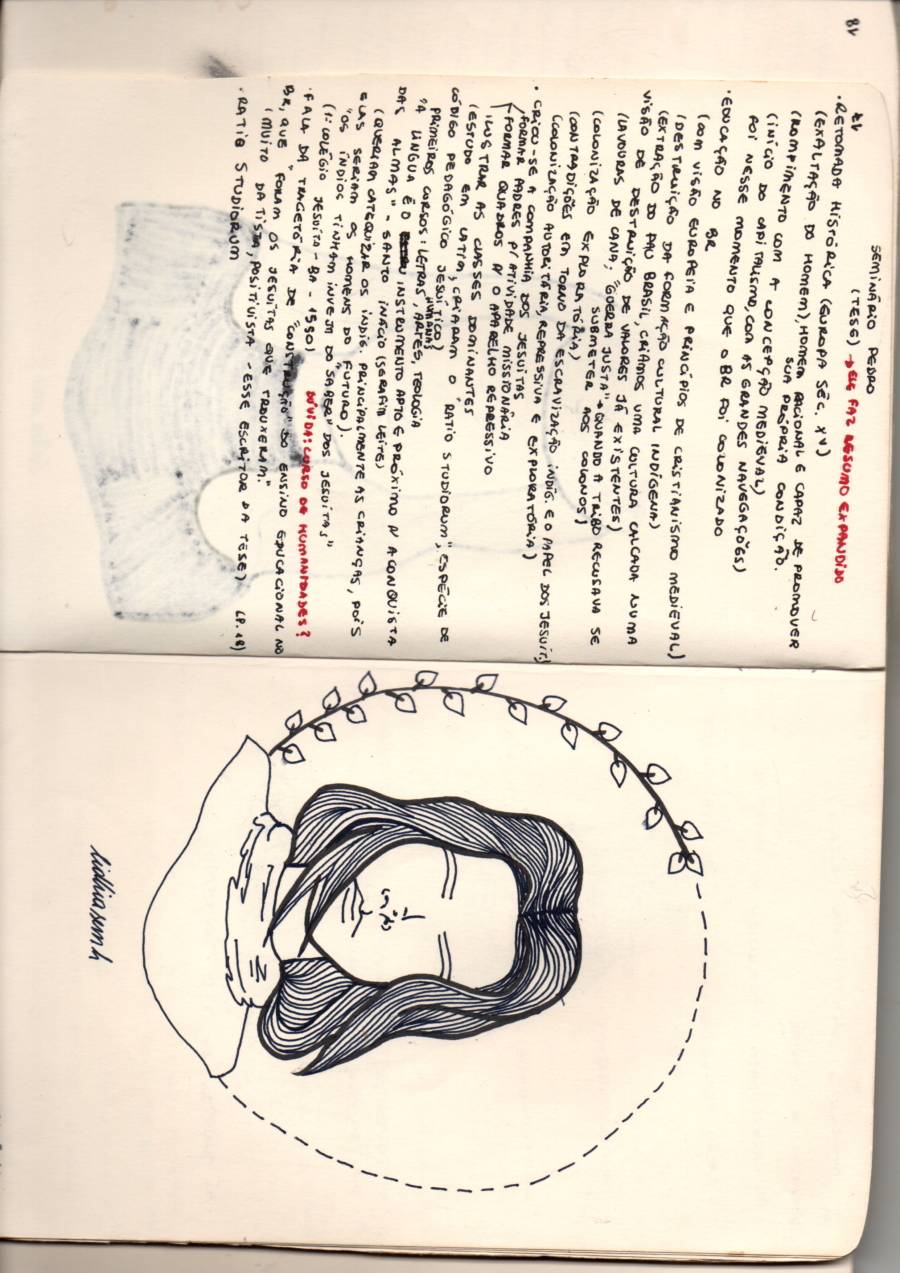 18
SEMINÁRIO PEDRO
(TESE) → ELE FAZ RESUMO EXPANDIDO
• RETOMADA HISTÓRICA (EUROPA SÉC. XV)
(EXALTAÇÃO DO HOMEM), HOMEM RACIONAL E CAPAZ DE PROMOVER SUA PRÓPRIA CONDIÇÃO.
(ROMPIMENTO COM A CONCEPÇÃO MEDIEVAL)
(INÍCIO DO CAPITALISMO, COM AS GRANDES NAVEGAÇÕES)
FOI NESSE MOMENTO QUE O BR FOI COLONIZADO
• EDUCAÇÃO NO BR
(COM VISÃO EUROPEIA E PRINCÍPIOS DE CRISTIANISMO MEDIEVAL)
(DESTRUIÇÃO DA FORMAÇÃO CULTURAL INDÍGENA)
(EXTRAÇÃO DO PAU BRASIL, CRIAMOS UMA CULTURA CALCADA NUMA
VISÃO DE DESTRUIÇÃO DE VALORES JÁ EXISTENTES)
(LAVOURAS DE CANA; "GUERRA JUSTA" → QUANDO A TRIBO RECUSAVA SE
SUBMETER AOS COLONOS)
(COLONIZAÇÃO EXPLORATÓRIA)
(CONTRADIÇÕES EM TORNO DA ESCRAVIZAÇÃO INDÍG. E O PAPEL DOS JESUIT.)
(COLONIZAÇÃO AUTORITÁRIA, REPRESSIVA E EXPLORATÓRIA)
• CRIOU-SE A COMPANHIA DOS JESUITAS
(FORMAR PADRES P/ ATIVIDADE MISSIONÁRIA
(FORMAR QUADROS P/ O APARELHO REPRESSIVO
ILUSTRAR AS CLASSES DOMINANTES
(ESTUDO EM LATIM, CRIARAM O "RATIO STUDIORUM", ESPÉCIE DE
CÓDIGO PEDAGÓGICO JESUÍTICO)
PRIMEIROS CURSOS: LETRAS HUMANAS, ARTES, TEOLOGIA
"A LINGUA É O INSTRUMENTO APTO E PRÓXIMO P/ A CONQUISTA
DAS ALMAS" - SANTO INÁCIO (SERAFIM LEITE)
(QUERIAM CATEQUIZAR OS INDÍG. PRINCIPALMENTE AS CRIANÇAS, POIS
ELAS SERIAM OS HOMENS DO FUTURO).
"OS ÍNDIOS TINHAM INVEJA DO "SABER" DOS JESUITAS"
(1º COLÉGIO JESUITA - BA - 1550) DÚVIDA: CURSO DE HUMANIDADES?
• FALA DA TRAGETÓRIA DE "CONSTRUÇÃO" DO ENSINO EDUCACIONAL NO
BR, QUE FORAM OS JESUITAS QUE TROUXERAM."
(MUITO DATISTA, POSITIVISTA - ESSE ESCRITOR DA TESE) (P. 18)
• RATIO STUDIORUM
lidhiasemh